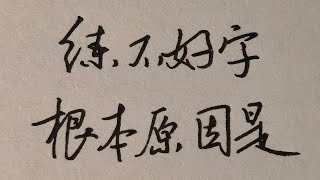 练不好字
根本原因是